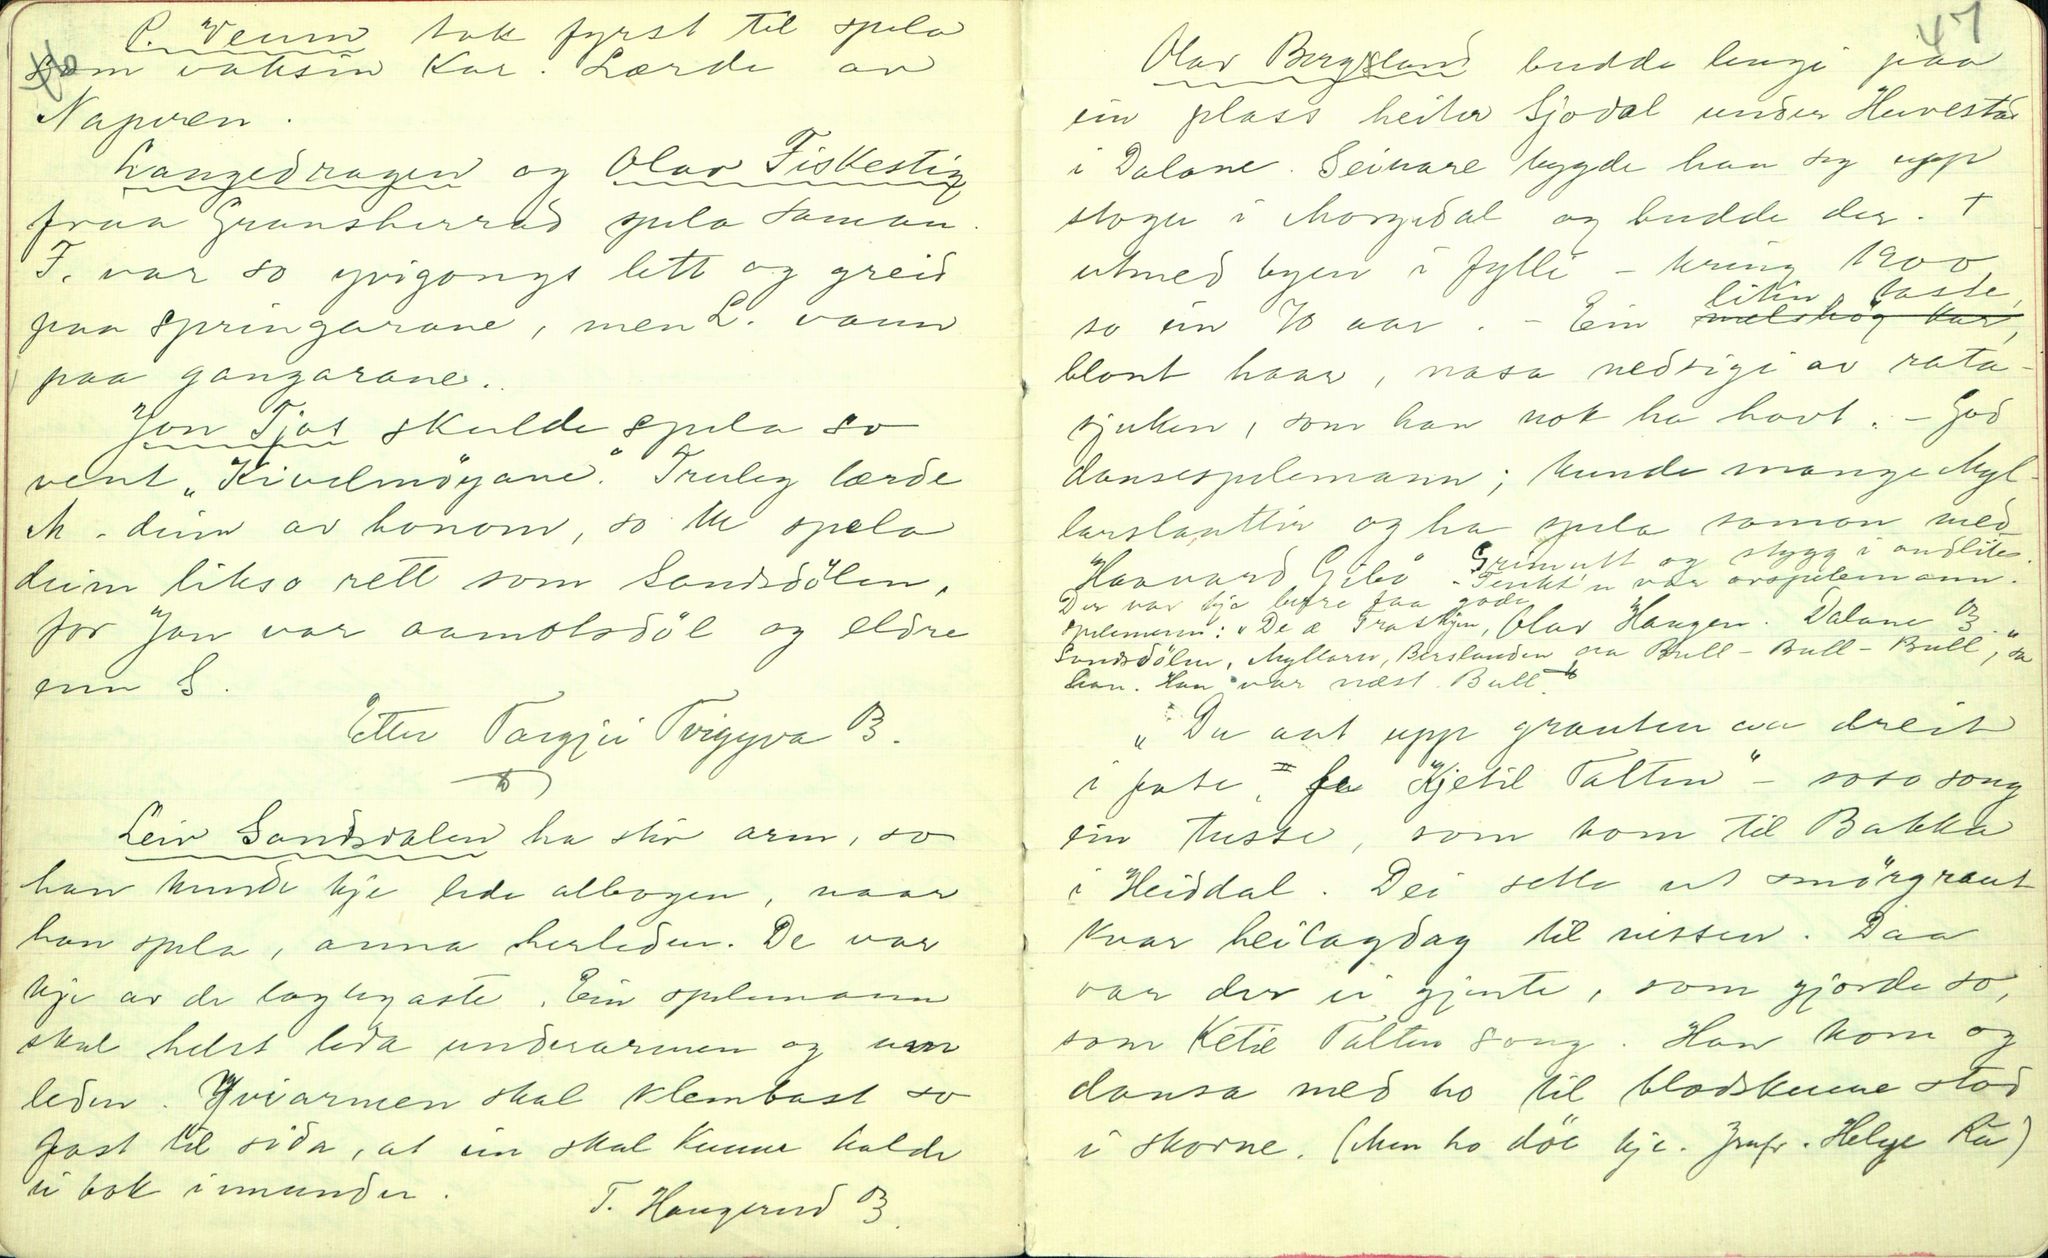 46
P. Veum tok fyrst til spela
som vaksin kar. Lærde av
Napren.
Langedragen og Olav Fiskestig
fraa Gransherrad spela saman.
F. var so yvigongs lett og greid
paa springarane, men L. vann
paa gangarane.
Jon Tjos skulde spela so
vent "Kivelmöyane". Truleg lærde
M. deim av honom, so M spela
deim likso rett som Sandsdölen,
for Jon var aamotsdöl og eldre
enn S.
Etter Targjei Tviggyva B.
Leiv Sandsdalen ha stiv arm, so
han kunde kje lede albogen, naar
han spela, anna herleden. De var
kje av de laglegaste. Ein spelemann
skal helst leda underarmen og
leden. Yviarmen skal klembast so
fast til sida, at ein skal kunne halde
ei bok innunder.
T. Haugerud B.
47
Olav Bergsland budde lengi paa
ein plass heiter Sjodal under Huvestad
i Dalane. Seinare bygde han seg upp
stogu i Morgedal og budde der. †
utmed byen i fylli - kring 1900,
so ein 70 aar. - Ein litin, taste,
blont haar, nasa nedsigi av rata-
sjuken, som han nok ha havt. - God
dansespelemann; kunde mange Myl-
larslaattir og ha spela saman med
Haavard Giböe Grimutt og stygg i andlite.
- Tenkt'n var ovspelemann.
Der var kje befre faa gode
spelemenn: "De æ Traskjen, Olav Haugen. Dalane B.
Sandsdölen, Myllaren, Berslanden aa Bull - Bull - Bull", sa
han. Han var næst Bull."
"Du aat upp grauten aa dreit
i fate, fe Kjetil Talten" - soso song
ein tusse, som kom til Bakka
i Heiddal. Dei sette ut smörgraut
kvar heilagdag til nissen. Daa
var der ei gjente, som gjorde so,
som Ketil Talten song. Han kom og
dansa med ho til blodskunne stod
i skorne. (Men ho döe kje. Jmfr. Helge Ru)